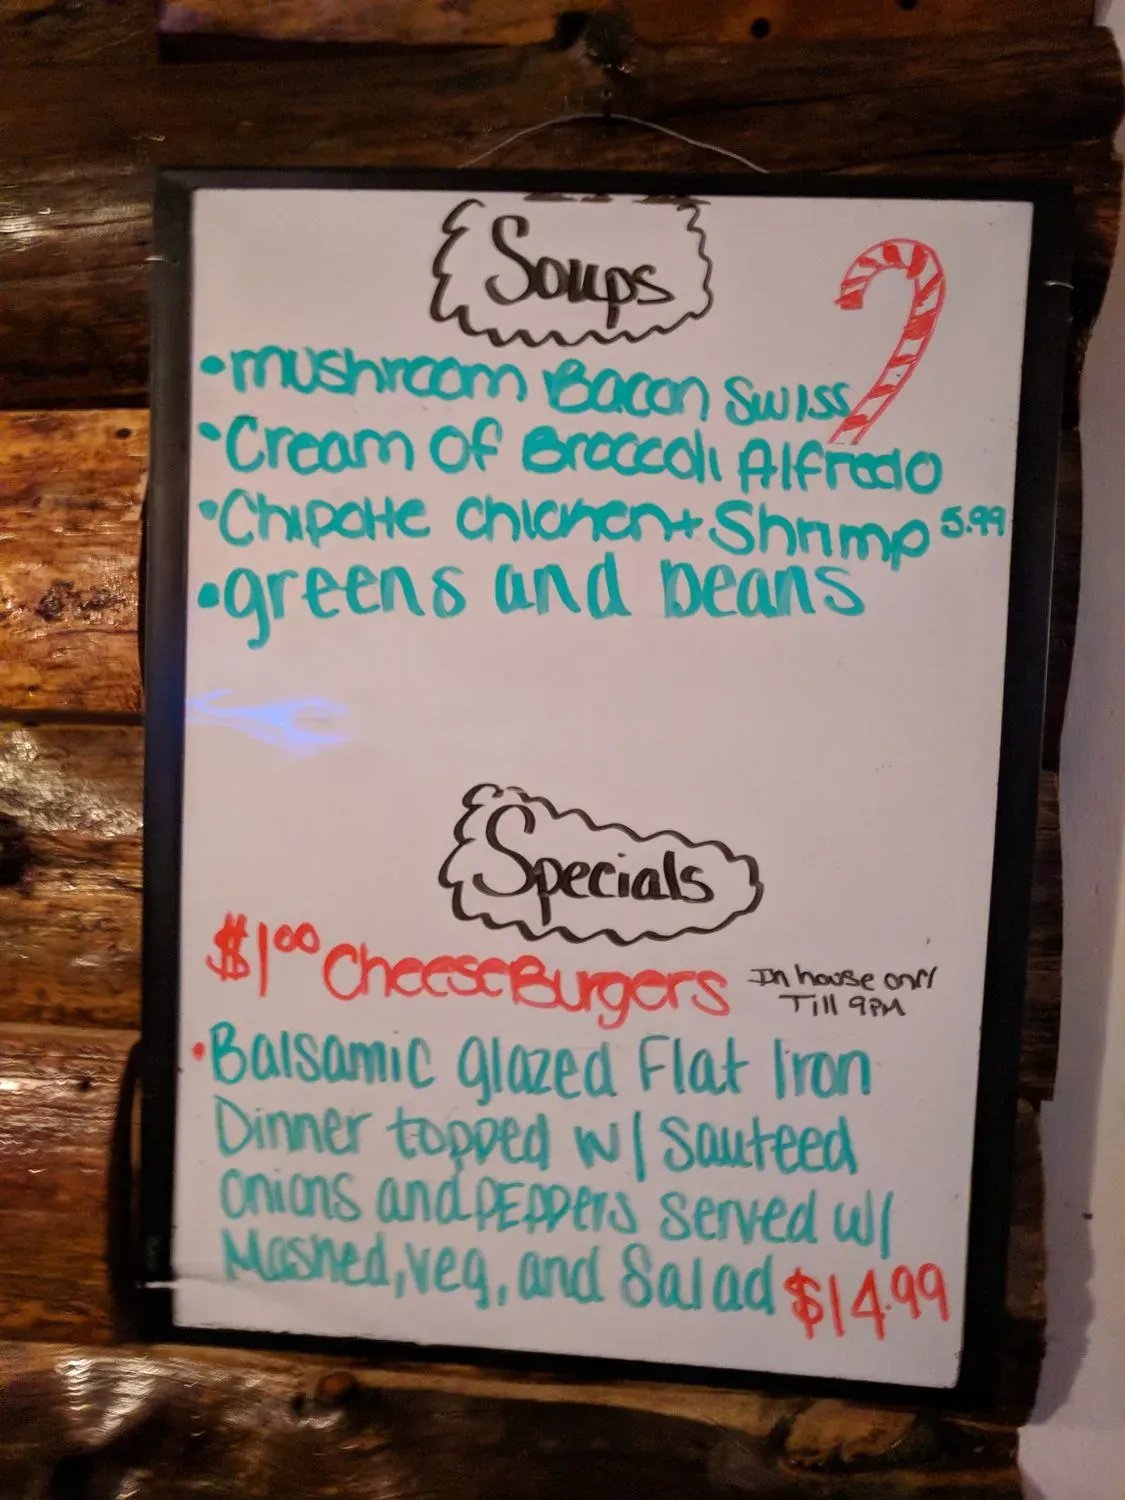 Soups
• mushroom Bacon Swiss
• Cream Of Broccoli Alfredo
• Chipotle chicken + Shrimp 5.99
• greens and beans
Specials
$1.00 CheeseBurgers In house only
Till 9PM
• Balsamic glazed Flat Iron
Dinner topped w/ Sauteed
onions and PEPPers Served w/
Mashed, veg, and Salad $14.99